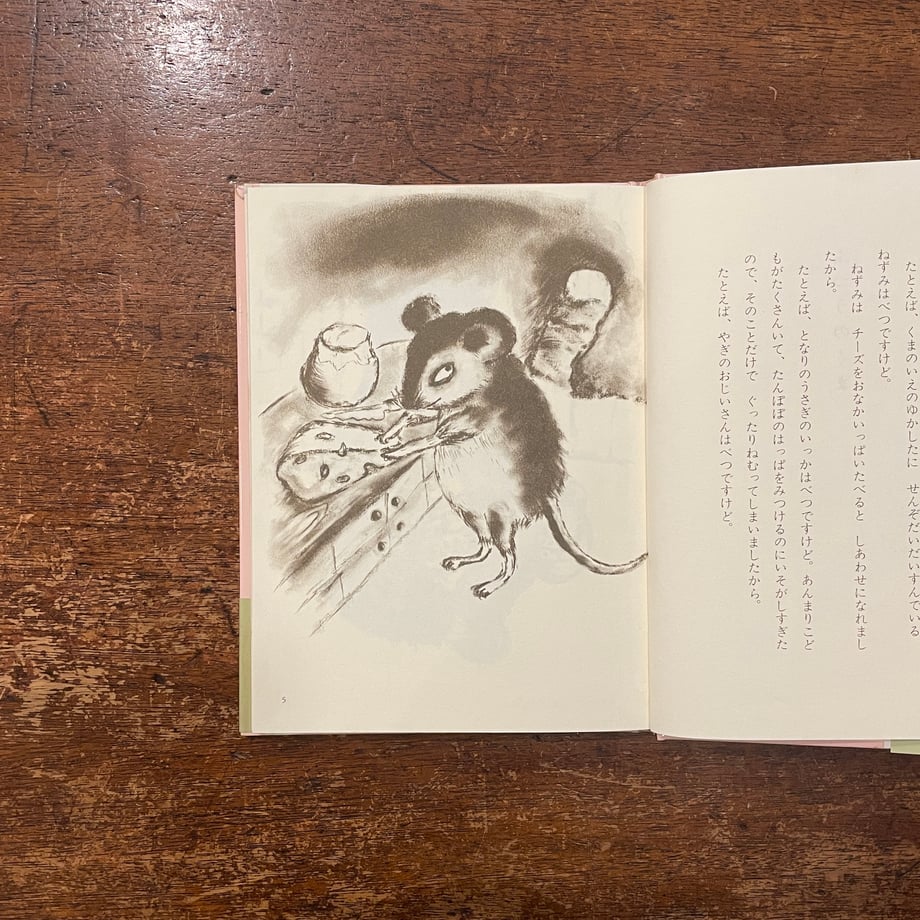 たとえば、くまのいえのゆかしたに　せんぞだいだいすんでいる
ねずみはべつですけど。
ねずみは　チーズをおなかいっぱいたべると　しあわせになれまし
たから。
たとえば、となりのうさぎのいっかはべつですけど。あんまりこど
もがたくさんいて、たんぽぽのはっぱをみつけるのにいそがしすぎた
ので、そのことだけで　ぐったりねむってしまいましたから。
たとえば、やぎのおじいさんはべつですけど。
5